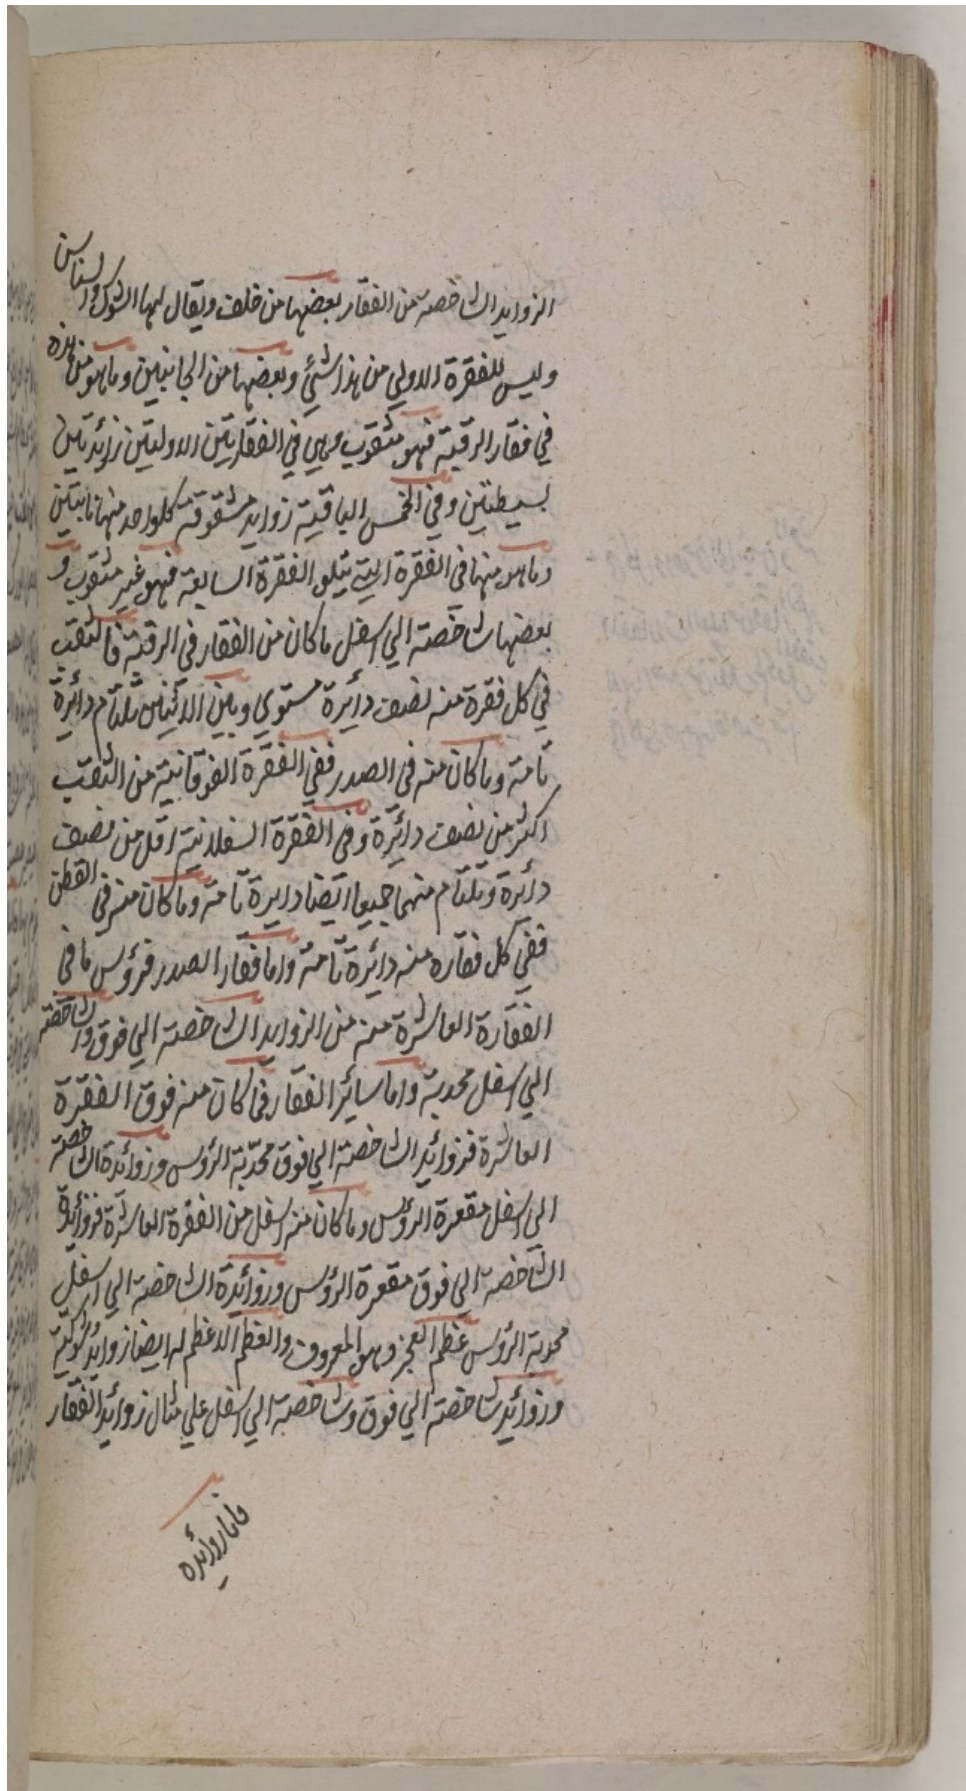 الزوايد الشاخصة من الفقار بعضها من خلف ويقال لها الشوك والسناسن
وليس للفقرة الاولي من هذا شئ وبعضها من الجانبين وما هو من هذه
في فقار الرقبة فهو مثقوب وهي في الفقارتين الاوليتين زائدتين
بسيطتين وفي الخمس الباقية زوايد مشقوقة كلواحد منها نابتين
وما هو منها في الفقرة التي تتلو الفقرة السابعة فهو غير مثقوب و
بعضها شاخصة الي اسفل ما كان من الفقار في الرقبة فالثقب
في كل فقرة منه نصف دائرة مستوي وبين الاثنين تلتام دائرة
تامة وما كان منه في الصدر ففي الفقرة الفوقانية من الثقب
اكثر من نصف دائرة وفي الفقرة السفلانية اقل من نصف
دائرة وتلتام منهما جميعا ايضا دايرة تامة وما كان منه في القطن
ففي كل فقاره منه دائرة تامة واما فقار الصدر فرؤس ما في
الفقارة العاشرة منه من الزوايد الشاخصة الي فوق والشاخصة
الي اسفل محدبة واما سائر الفقار فما كان منه فوق الفقرة
العاشرة فزوائد الشاخصة الي فوق محدبة الرؤس وزوائدة الشاخصة
الي اسفل مقعرة الرؤس وما كان منه اسفل من الفقرة العاشرة فزوائدة
الشاخصة الي فوق مقعرة الرؤس وزوائدة الشاخصة الي اسفل
محدبة الرؤس عظم العجز وهو المعروف والعظم الاعظم له ايضا زوايد شوكية
وزوائد شاخصة الي فوق وشاخصة الي اسفل علي مثال زوائد الفقار
فاما زوائده